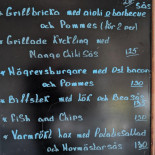 • Grillbricka med aioli & barbecue
och Pommes (för 2 per)
• Grillade Kyckling med
Mango Chili sås 125
• Högrevsburgare med Ost bacon
och Pommes 130
• Biffstek med lök och Bea sås
• Fish and Chips 130
• Varmrökt lax med Potatissallad
och Hovmästarsås 130